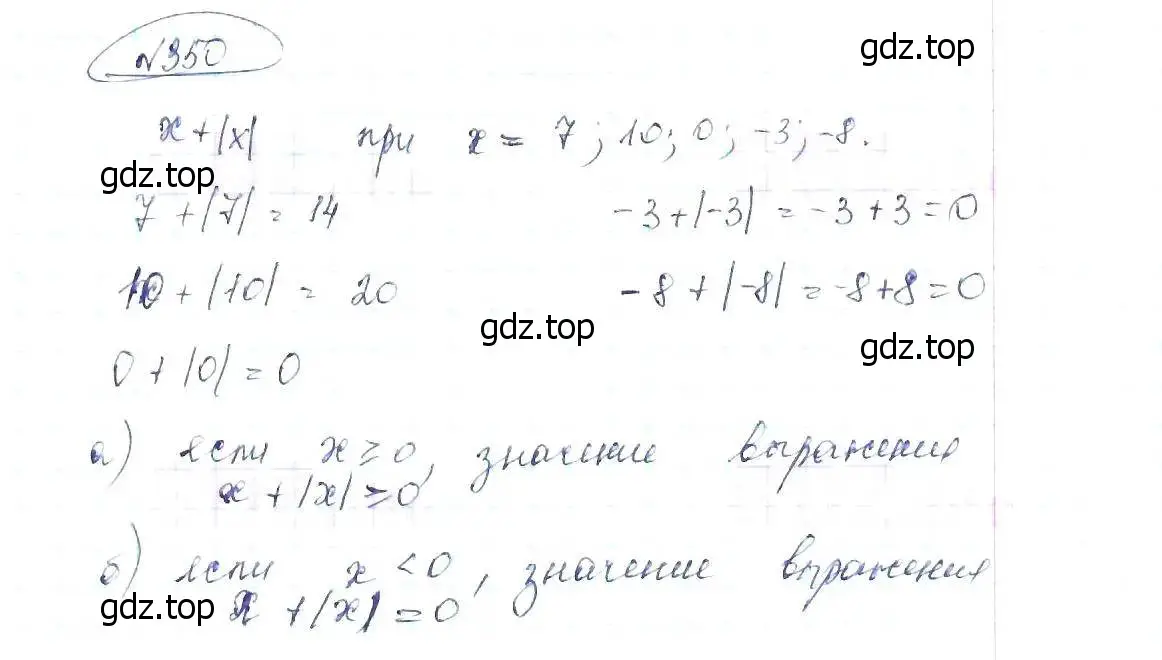 №350
gdz.top
x + |x| при x = 7; 10; 0; -3; -8.
gdz.top
7 + |7| = 14
-3 + |-3| = -3 + 3 = 0
10 + |10| = 20
-8 + |-8| = -8 + 8 = 0
gdz.top
gdz.top
0 + |0| = 0
а) если x ≥ 0, значение выражения
x + |x| ≥ 0
б) если x < 0, значение выражения
gdz.top
x + |x| = 0